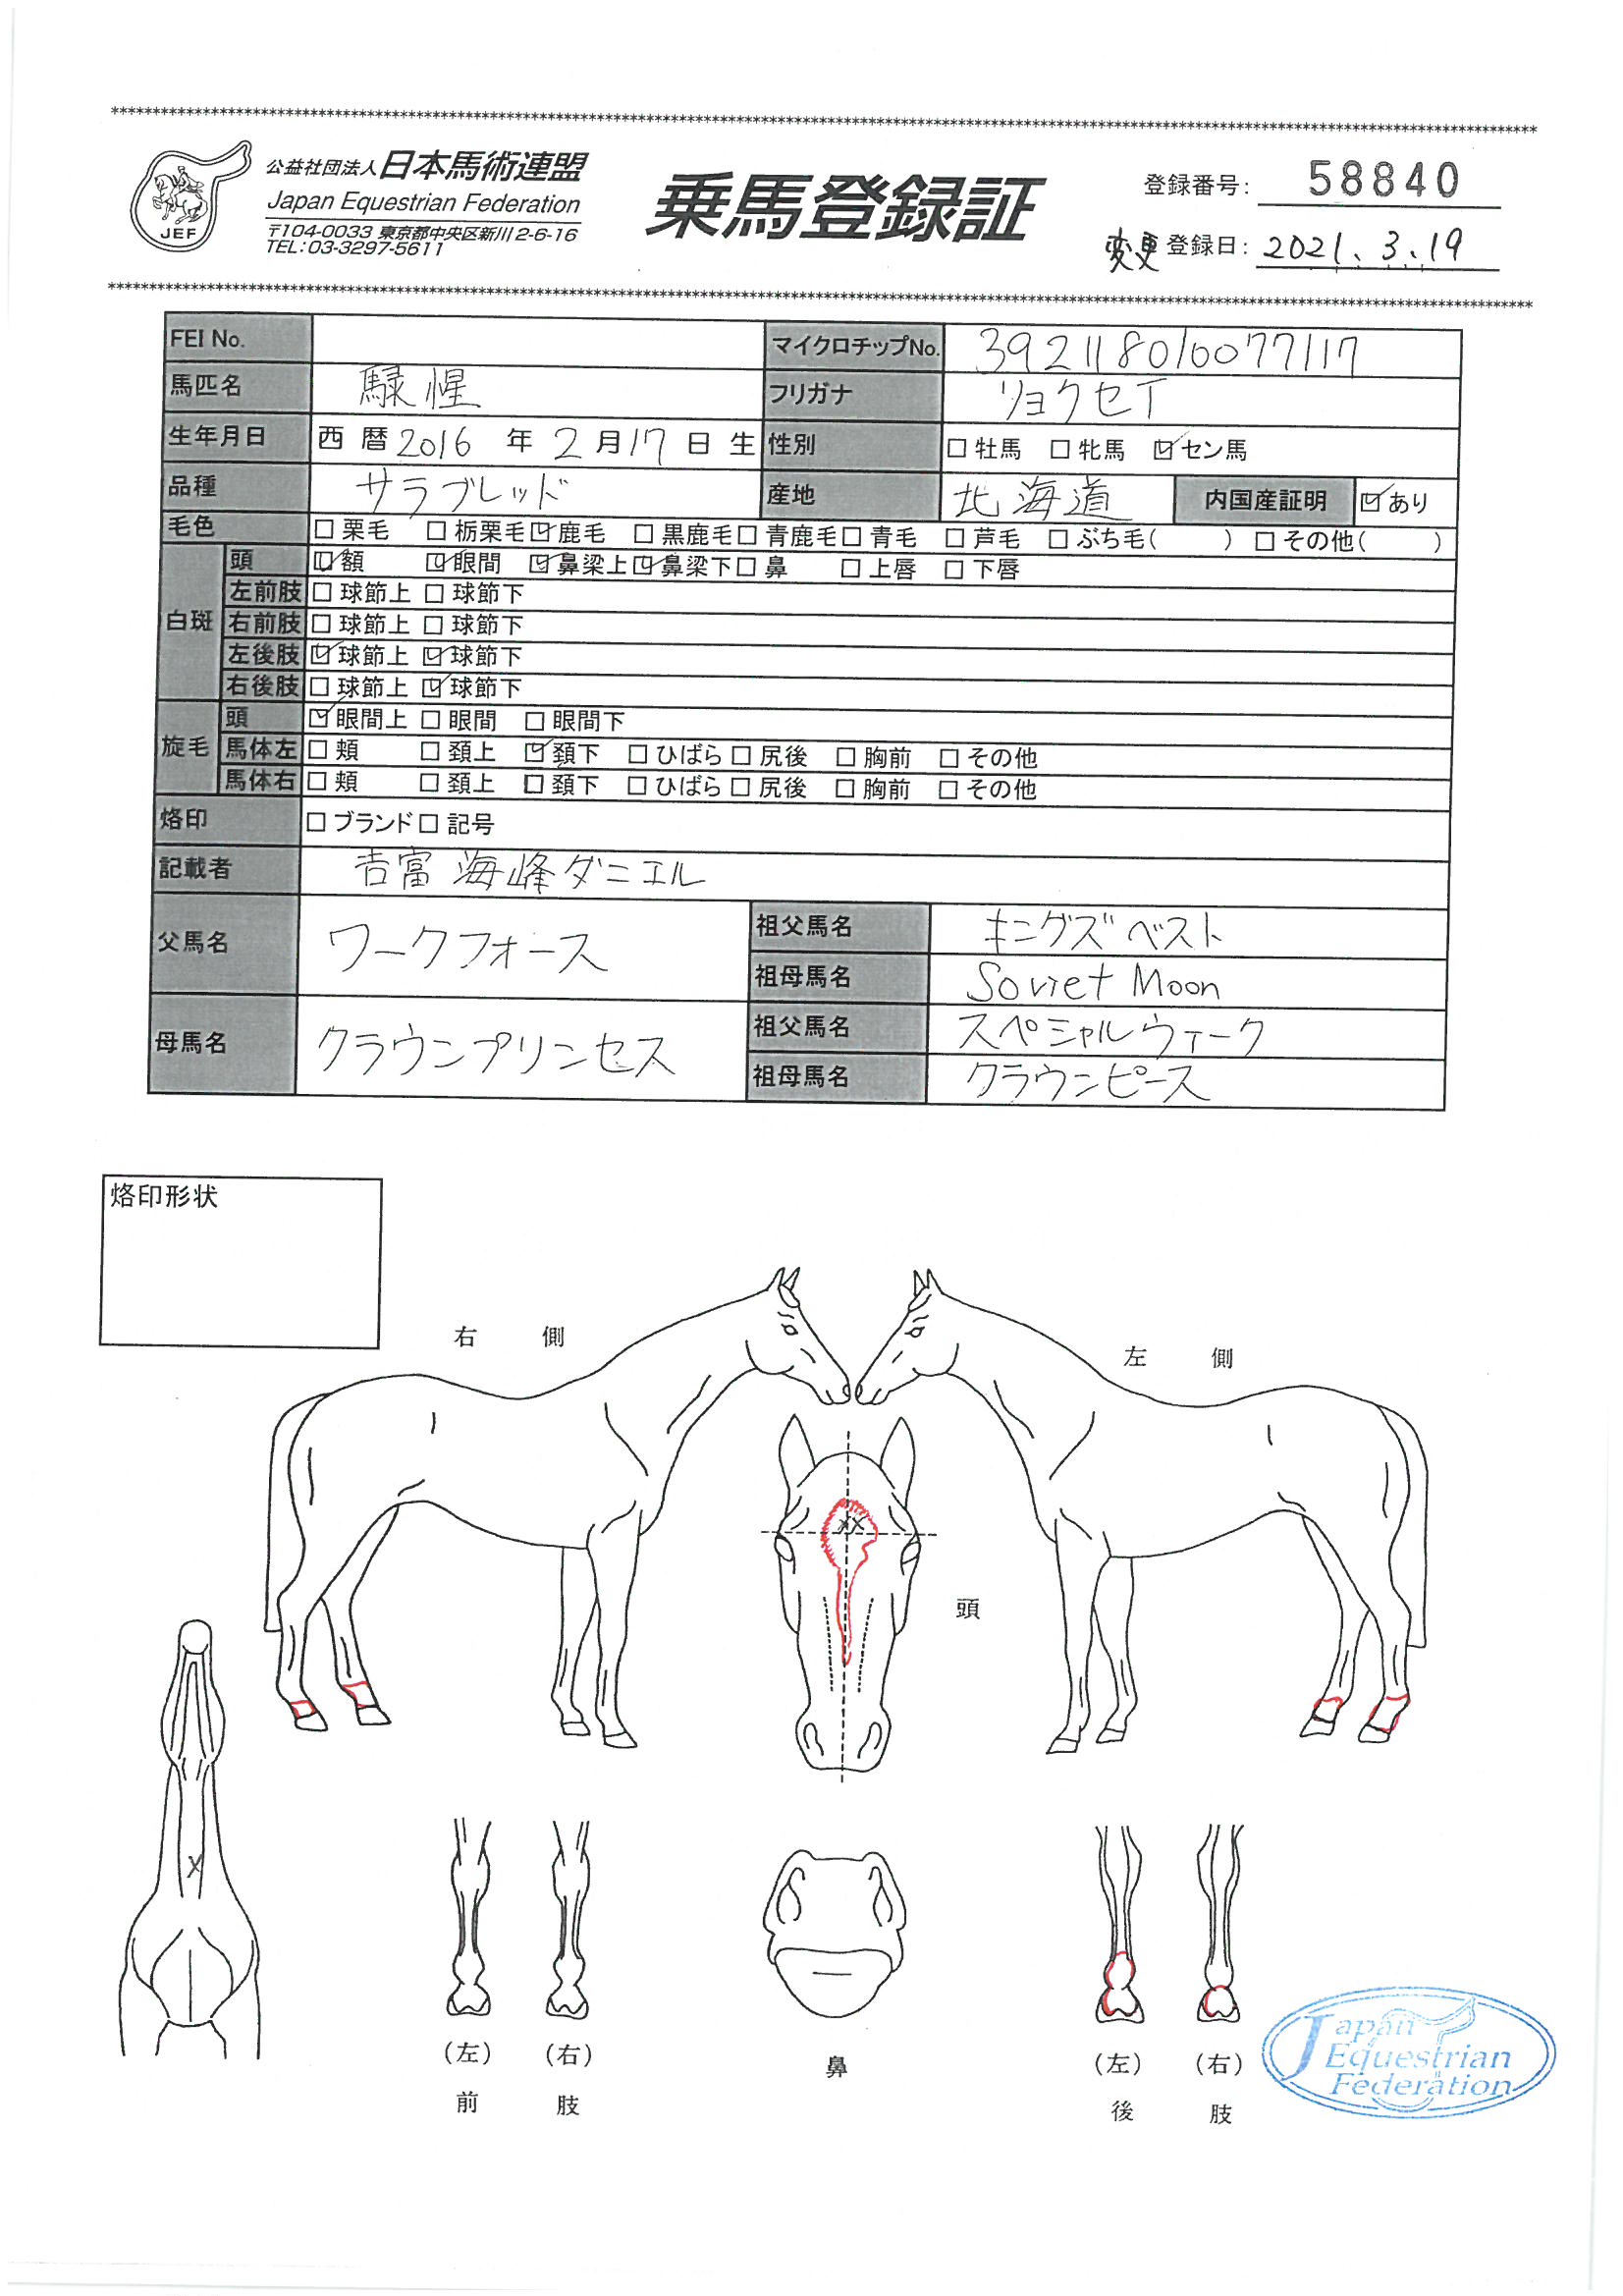 公益社団法人 日本馬術連盟
Japan Equestrian Federation
〒104-0033 東京都中央区新川2-6-16
TEL:03-3297-5611
JEF
乗馬登録証
登録番号: 58840
変更 登録日: 2021.3.19
FEI No. マイクロチップNo. 392118010077117
馬匹名 騄惺 フリガナ リョクセイ
生年月日 西暦2016年2月17日生 性別 □牡馬 □牝馬 ☑セン馬
品種 サラブレッド 産地 北海道 内国産証明 ☑あり
毛色 □栗毛 □栃栗毛 ☑鹿毛 □黒鹿毛 □青鹿毛 □青毛 □芦毛 □ぶち毛( ) □その他( )
白斑
頭 ☑額 ☑眼間 ☑鼻梁上 ☑鼻梁下 □鼻 □上唇 □下唇
左前肢 □球節上 □球節下
右前肢 □球節上 □球節下
左後肢 ☑球節上 ☑球節下
右後肢 □球節上 ☑球節下
旋毛
頭 ☑眼間上 □眼間 □眼間下
馬体左 □頬 □頚上 ☑頚下 □ひばら □尻後 □胸前 □その他
馬体右 □頬 □頚上 □頚下 □ひばら □尻後 □胸前 □その他
烙印 □ブランド □記号
記載者 吉富 海峰ダニエル
父馬名 ワークフォース 祖父馬名 キングズベスト
祖母馬名 Soviet Moon
母馬名 クラウンプリンセス 祖父馬名 スペシャルウィーク
祖母馬名 クラウンピース
烙印形状
右側
左側
XX
頭
X
(左) (右)
前肢
鼻
(左) (右)
後肢
Japan
Equestrian
Federation